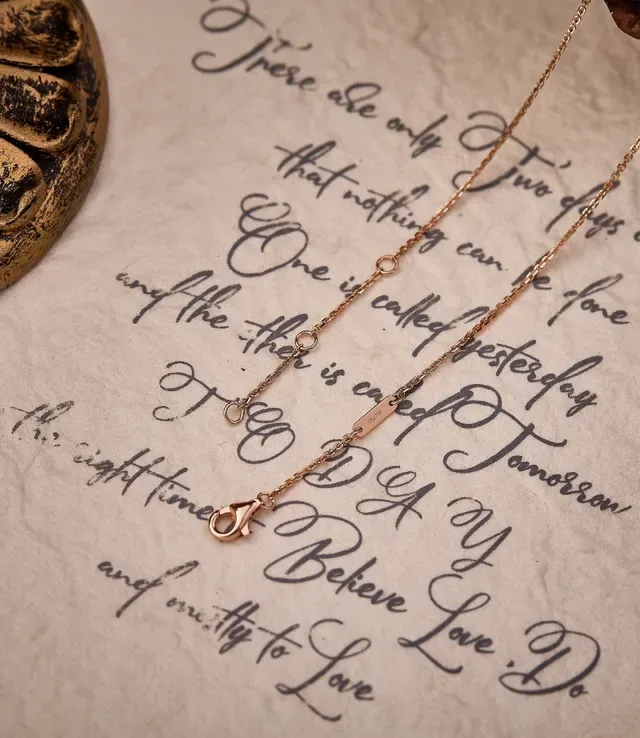 There are only Two days
that nothing can be done
One is called yesterday
and the other is called Tomorrow
TODAY
the right time Believe Love, Do
and mostly to Love